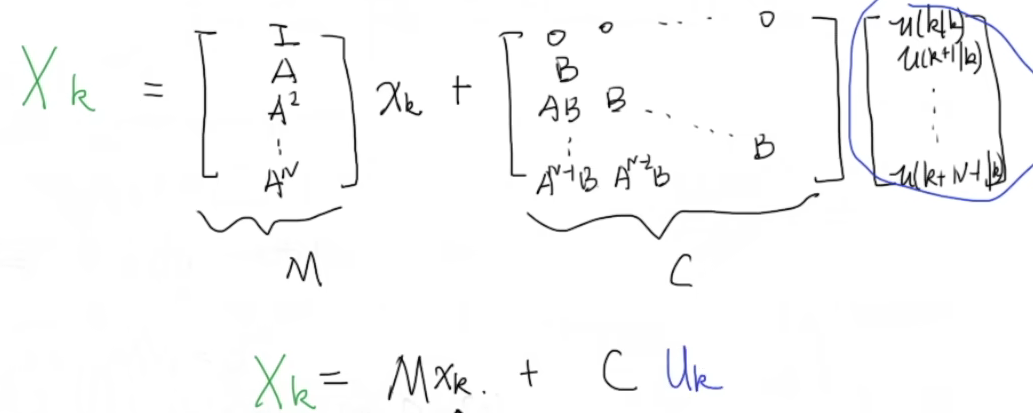 X_k = [ I A A² ⋮ A^N ] x_k + [ 0 0 ⋯ 0 B AB B ⋱ ⋮ A^{N-1}B A^{N-2}B B ] [ u(k|k) u(k+1|k) ⋮ u(k+N-1|k) ]
M C
X_k = M x_k. + C U_k